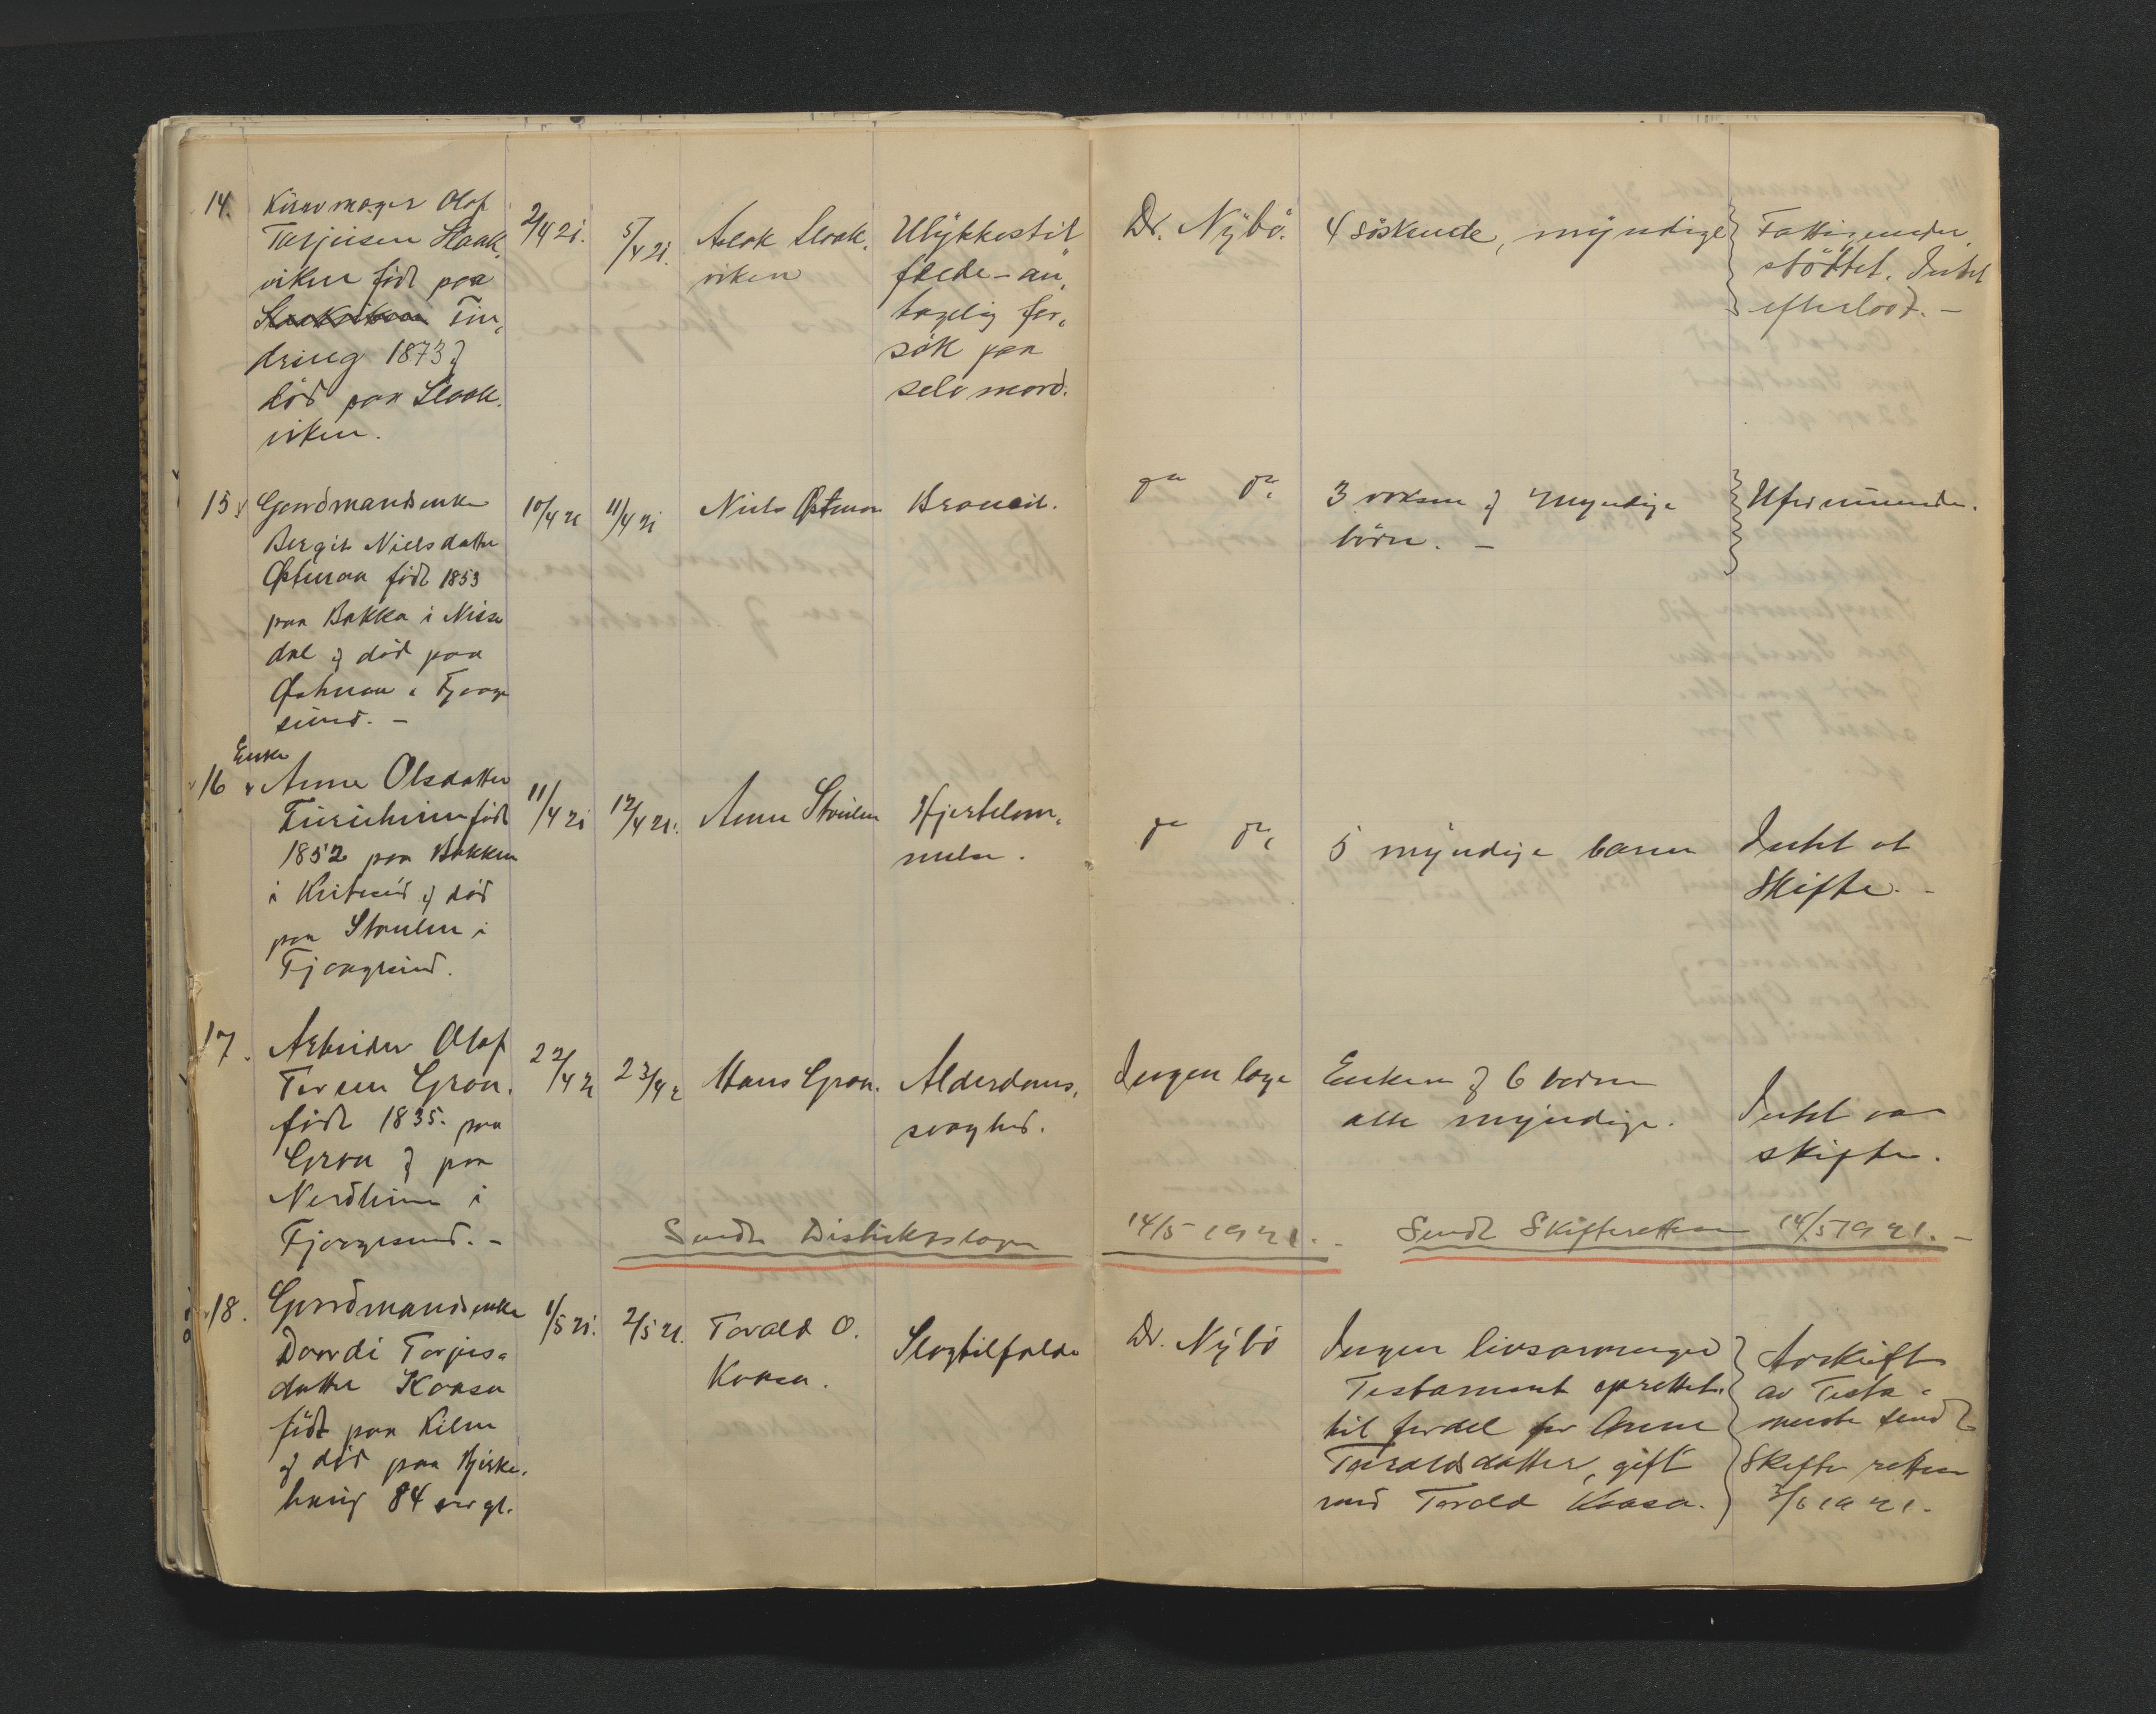 14. Kurvmager Olaf
Tarjeisen Slaak,
viken född paa
Tin,
dreng 1873 &
död paa Slaak,
viken.
2/4 21.
5/4 21.
Aslak Slaak,
viken
Ulykkestil
fælde - an,
tagelig for,
sök paa
selvmord.
Dr. Nybö.
4 söskende, myndige
Fattigunder,
stöttet. Intet
efterladt. -
15. Gaardmandsenke
Bergit Nielsdatter
Østmoa född 1853
paa Bakka i Nisse
dal & död paa
Østmoa i Fjaage
sund. -
10/4 21
11/4 21
Niels Østmoa
Do. Do.
3 voksne & myndige
börn. -
16 Enke
Anne Olsdatter
född
1852 paa Bakken
i Kvitseid & död
paa Staulen i
Fjaagesund.
11/4 21
12/4 21.
Anne Staulen
Hjertelam,
melse.
Do. Do.
5 myndige barn
Intet at
Skifte. -
17. Arbeider Olaf
Graa.
född 1835. paa
Graa & paa
Nordheim i
Fjaagesund. -
22/4 21
23/4 21
Hans Graa.
Alderdoms,
svaghed.
Ingen læge
Enken & 6 barn
alle myndige.
Intet aa
skifte.
Sendt Distriktslægen 14/5 1921. - Sendt Skifteretten 14/5 1921. -
18. Gaardmandsenke
Dordi Tarjeis-
datter Kaasa
född paa Kilen
& död paa Bjerke,
haug 84 aar gl.
1/5 21.
2/5 21.
Tarald O.
Kaasa.
Slagtilfælde
Dr. Nybö
Ingen livsarvinger
Testament oprettet
til fordel for Anne
Taraldsdatter, gift
med Tarald Kaasa.
Avskrift
av Testa-
mente sendt
Skifteretten
3/6 1921.